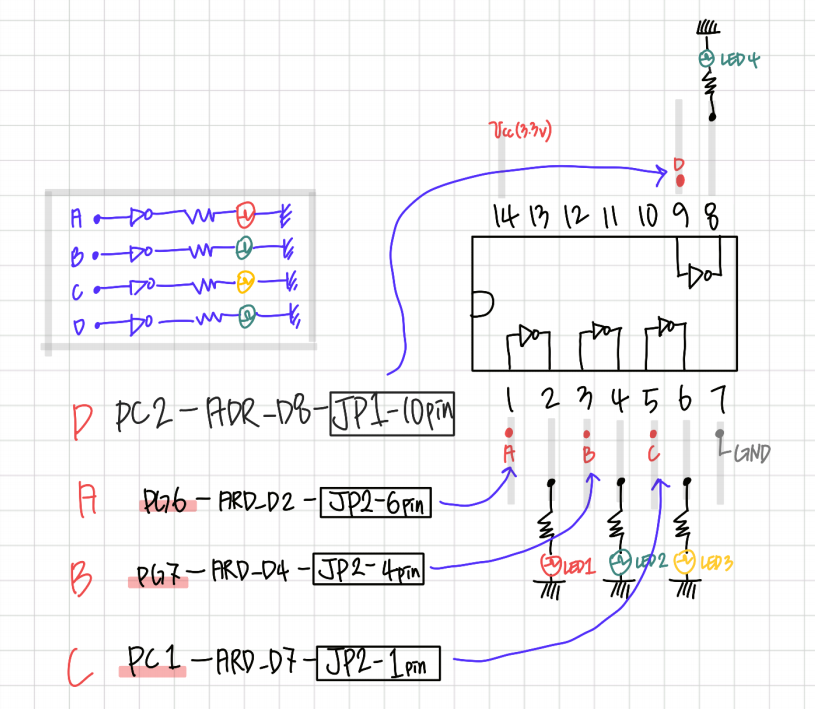 LED4
Vcc(3.3v)
D
14 13 12 11 10 9 8
A
B
C
D
1 2 3 4 5 6 7
A B C GND
LED1 LED2 LED3
D PC2-ADR_D8-JP1-10pin
A PG6-ARD_D2-JP2-6pin
B PG7-ARD_D4-JP2-4pin
C PC1-ARD_D7-JP2-1pin